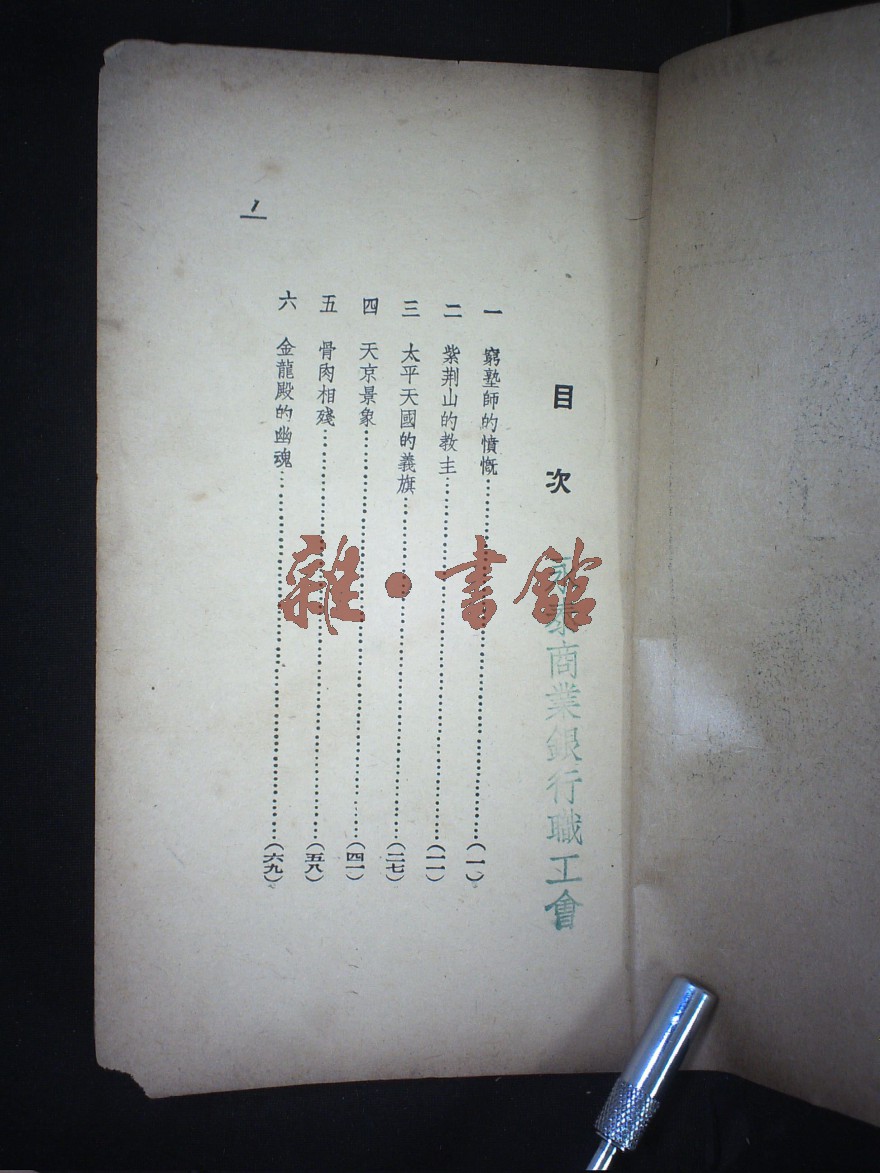 目次
一 窮塾師的憤慨……(一)
二 紫荆山的教主……(一一)
三 太平天國的義旗……(二七)
四 天京景象……(四一)
五 骨肉相殘……(五八)
六 金龍殿的幽魂……(六九)
1
泰商業銀行職工會
雜·書館